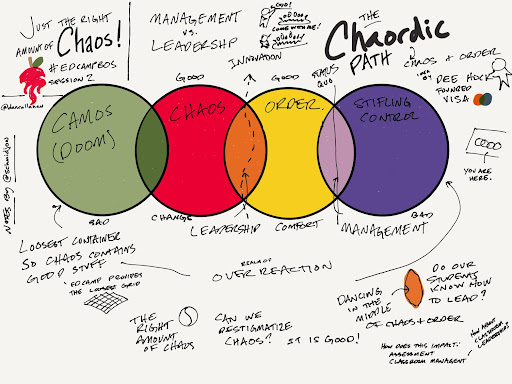 JUST THE RIGHT
AMOUNT OF Chaos!
#EDCAMPBOS
SESSION 2
@dancallahan
MANAGEMENT
VS.
LEADERSHIP
INNOVATION
COME WITH ME!
STATUS
QUO
THE
Chaordic
PATH
CHAOS + ORDER
IDEA
OF
DEE HOCK
FOUNDED
VISA
GOOD
GOOD
CAMOS
(DOOM)
CHAOS
ORDER
STIFLING
CONTROL
YOU ARE
HERE.
NOTES BY @schmidjon
BAD
CHANGE
LEADERSHIP
COMFORT
MANAGEMENT
BAD
LOOSEST CONTAINER
SO CHAOS CONTAINS
GOOD STUFF
EDCAMP PROVIDES
THE LOOSE GRID
REALM OF
OVER REACTION
THE
RIGHT
AMOUNT
OF CHAOS
CAN WE
DESTIGMATIZE
CHAOS?
IT IS GOOD!
DANCING
IN THE
MIDDLE
OF CHAOS + ORDER
DO OUR
STUDENTS
KNOW HOW
TO LEAD?
HOW DOES THIS IMPACT:
ASSESSMENT
CLASSROOM MANAGEMENT
HOW ABOUT
CLASSROOM
LEADERSHIP?